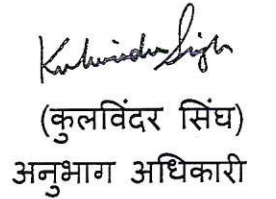 Kulwinder Singh
(कुलविंदर सिंघ)
अनुभाग अधिकारी